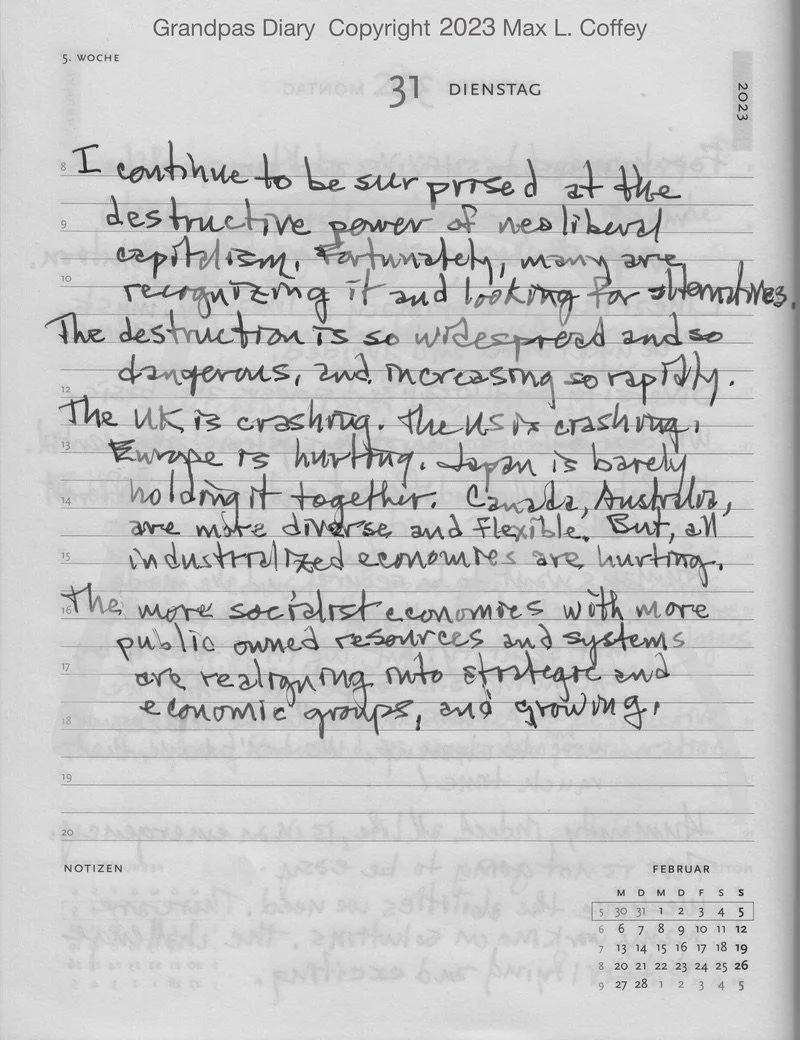 Grandpas Diary Copyright 2023 Max L. Coffey
5. WOCHE
31 DIENSTAG
2023
8 I continue to be surprised at the
9 destructive power of neoliberal
capitalism. Fortunately, many are
10 recognizing it and looking for alternatives.
The destruction is so widespread and so
dangerous, and increasing so rapidly.
12
The UK is crashing. The US is crashing.
13 Europe is hurting. Japan is barely
14 holding it together. Canada, Australia,
are more diverse and flexible. But, all
15 industrialized economies are hurting.
16 The more socialist economies with more
public owned resources and systems
17 are realigning into strategic and
18 economic groups, and growing.
19
20
NOTIZEN
FEBRUAR
M D M D F S S
5 30 31 1 2 3 4 5
6 6 7 8 9 10 11 12
7 13 14 15 16 17 18 19
8 20 21 22 23 24 25 26
9 27 28 1 2 3 4 5